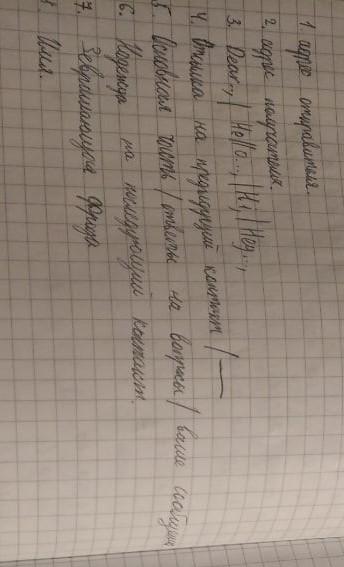 1 адрес отправителя.
2. адрес получателя.
3. Dear.., | Hello..., | Hi, | Hey...,
4. Отсылка на предыдущий контакт / —
5. Основная часть / ответы на вопросы / ваше сообщени
6. Надежда на последующий контакт.
7. Завершающая фраза
8. Имя.